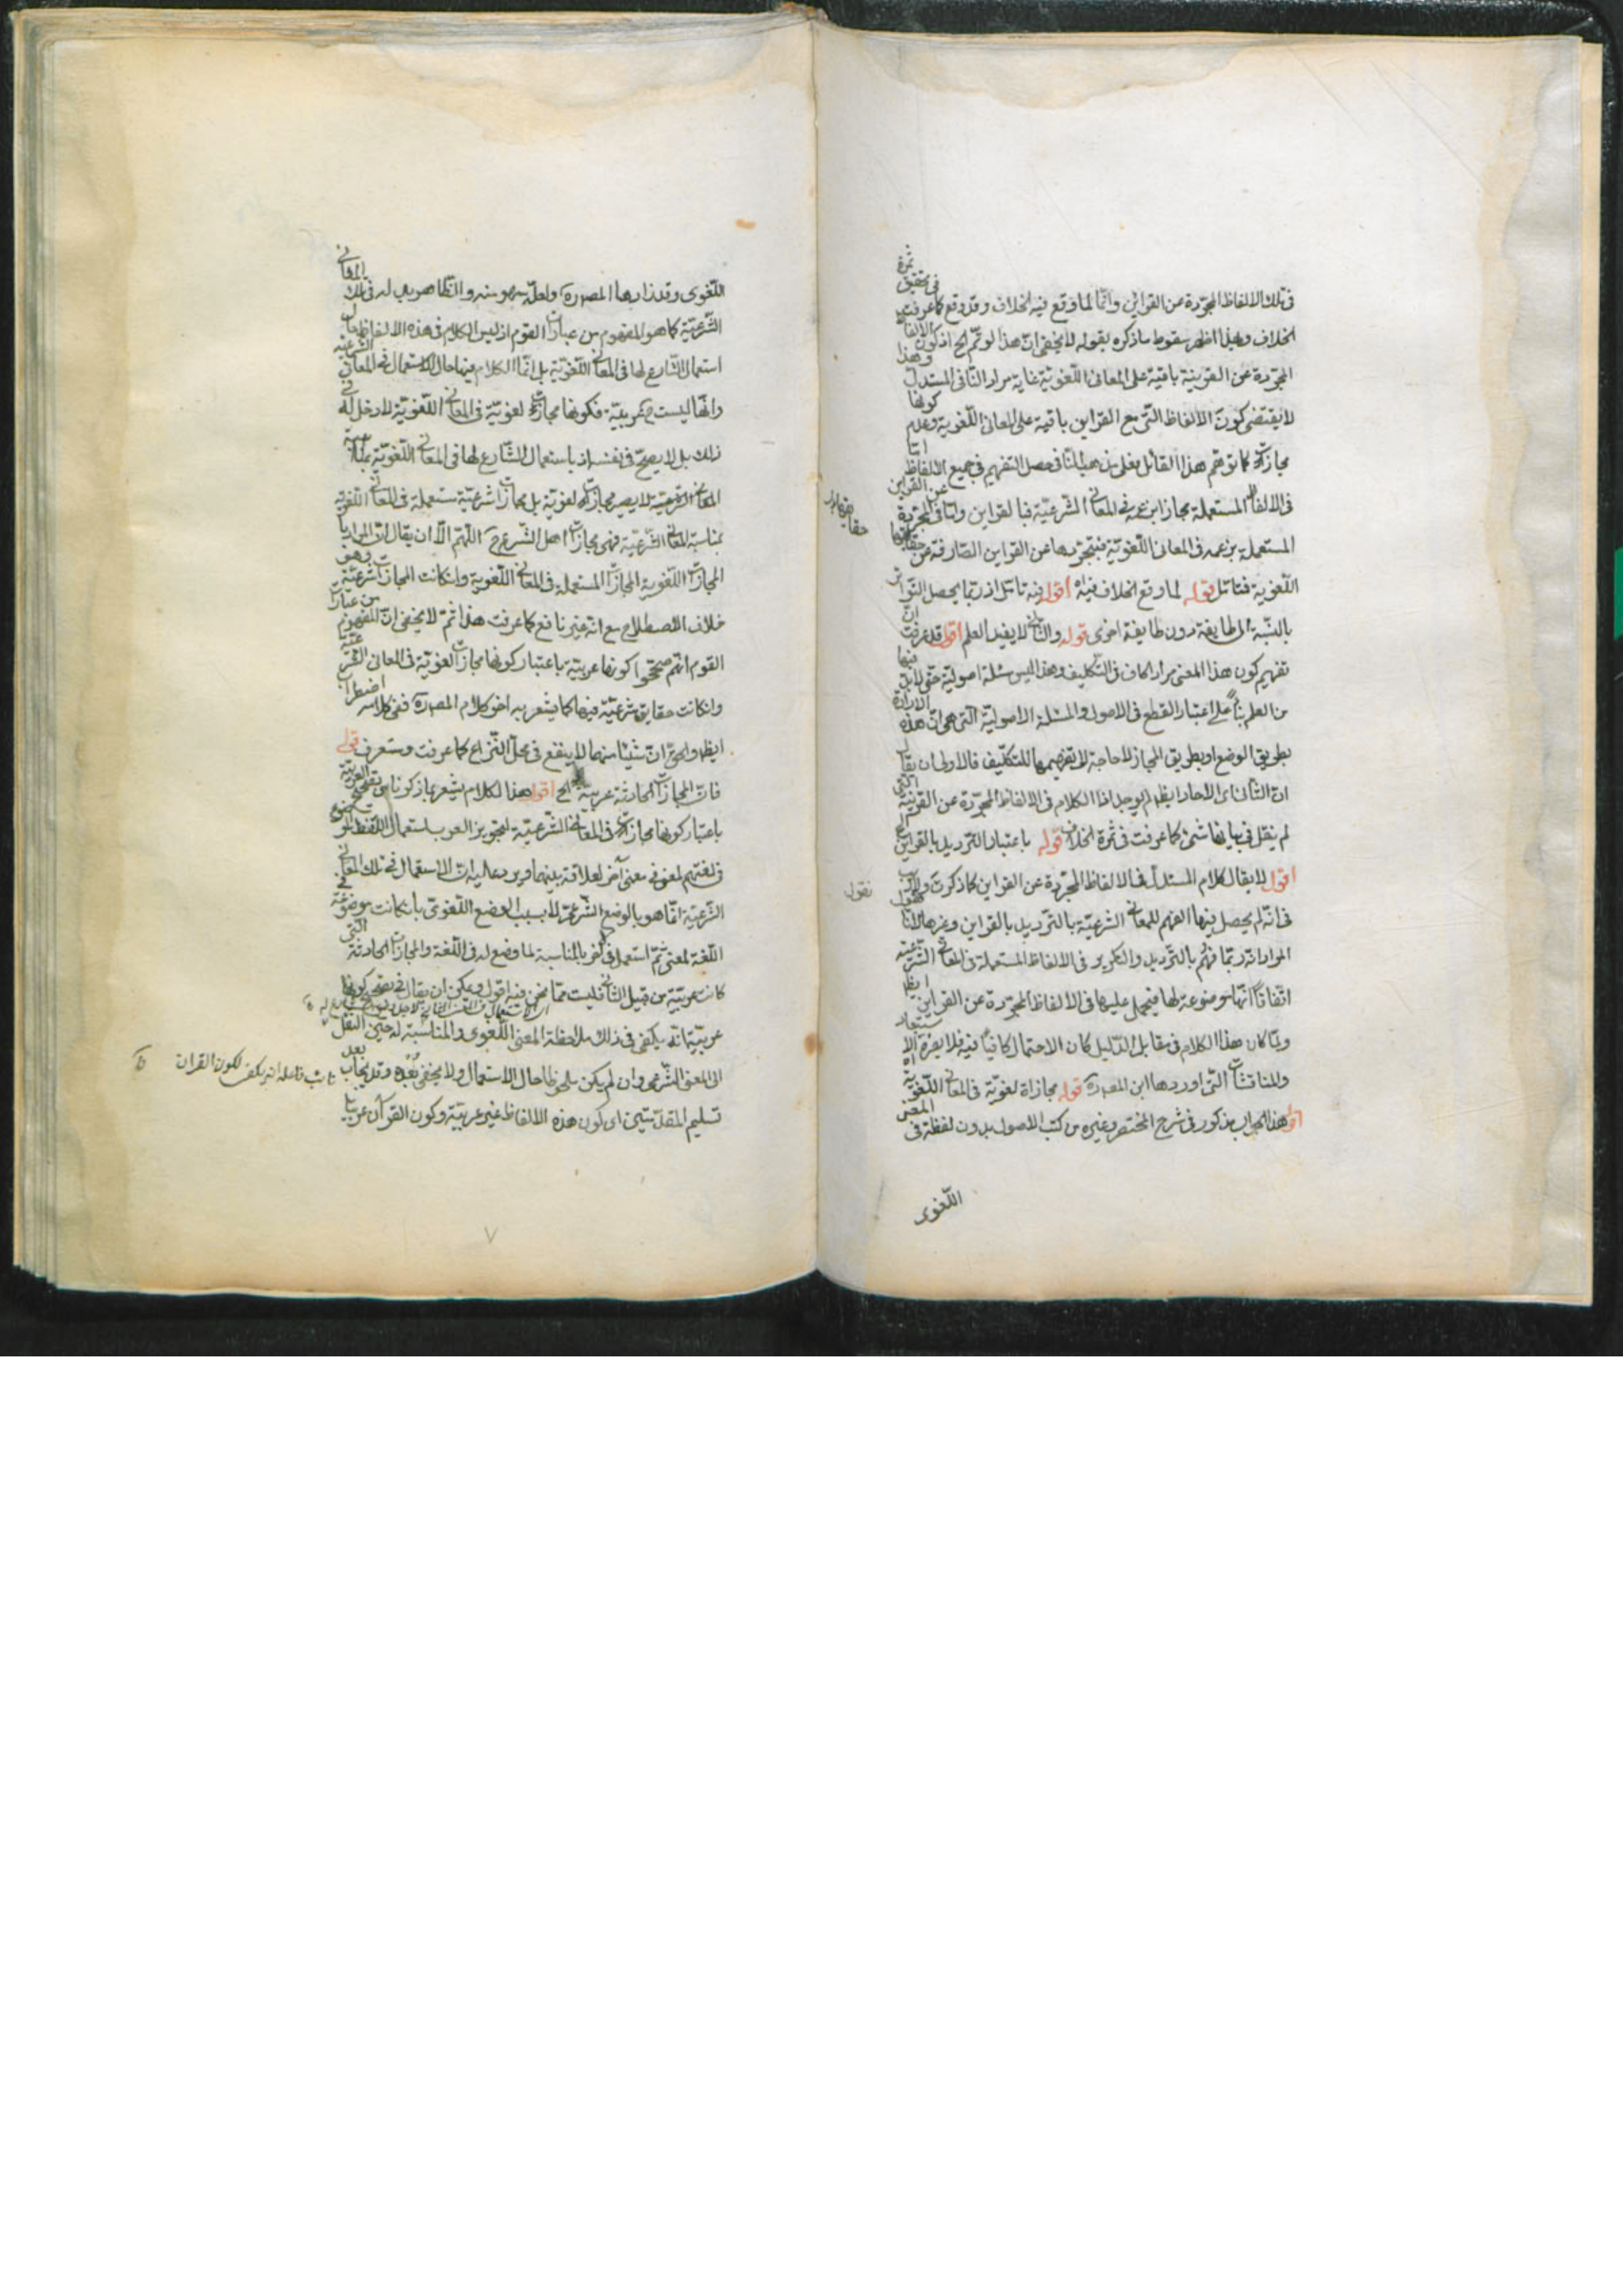 في تلك الالفاظ المجرّدة عن القراين وانّما لما وقع فيه الخلاف وقد وقع كما عرفت في تحقيق ثمرة
الخلاف وبهذا اظهر سقوط ما ذكره بقوله لا يخفى انّ هذا لو تمّ الخ اذ كون الالفاظ
المجرّدة عن القرينة باقية على المعاني اللّغويّة غاية مراد النّافي المستدلّ وهذا
لا يقتضي كون الالفاظ الّتي مع القراين باقية على المعاني اللّغوية وعدم كونها
مجازات كما توهّم هذا القائل فعلى مذهب النّافي حصل التفهيم في جميع الالفاظ امّا
في الالفاظ المستعملة مجازا بزعمه في المعاني الشّرعيّة فبالقراين وامّا في المجرّدة عن القراين
المستعملة بزعمه في المعاني اللّغويّة فبتجرّدها عن القراين الصّارفة عن حقايقها
اللّغوية فتأمّل قوله لما وقع الخلاف فيه اقول فيه تأمّل اذ ربّما يحصل التّواتر
بالنّسبة الى طايفة دون طايفة اخرى قوله والثّاني لا يفيد العلم اقول قد عرفت انّ
تفهيم كون هذا المعنى مرادا كاف في التّكليف وهذا ليس مسئلة اصولية حتّى لا بدّ فيها
من العلم بناءً على اعتبار القطع في الاصول والمسئلة الاصوليّة الّتي هي انّ هذه الارادة
بطريق الوضع او بطريق المجاز لا حاجة الى تفهيمها للتكليف فالاولى ان يقال
انّ الثّاني اى الآحاد ايضا لم يوجد اذ الكلام في الالفاظ المجرّدة عن القرينة الّتي
لم ينقل في بيانها شئ كما عرفت في ثمرة الخلاف قوله باعتبار التّرديد بالقراين الخ
اقول لا يقال كلام المستدلّ في الالفاظ المجرّدة عن القراين كما ذكرت ولا ريب
في انّه لم يحصل فيها الفهم للمعاني الشرعيّة بالتّرديد بالقراين وغيرها لانّا نقول
المراد انّه ربّما فهم بالتّرديد والتكرير في الالفاظ المستعملة في المعاني الشّرعيّة
اتّفاقاً انّها موضوعة لها فيحمل عليها في الالفاظ المجرّدة عن القراين ايضا
ولمّا كان هذا الكلام في مقابل الدّليل كان الاحتمال كافياً فيه فلا يضرّه الاستبعاد
والمناقشات الّتي اوردها ابن المصدره قوله مجازاة لغويّة في المعاني اللّغويّة اه
اقول هذا الجواب مذكور في شرح المختصر وغيره من كتب الاصول بدون لفظة في المعنى
اللّغوى
نقول
اللّغوى وقد زادها المصدره ولعلّه سهو منه والظّاهر بدله في تلك المعاني
الشّرعيّة كما هو المفهوم من عبارات القوم اذ ليس الكلام في هذه الالفاظ حال
استعمال الشّارع لها في المعاني اللّغويّة بل انّما الكلام فيها حال الاستعمال في المعاني الشرعيّة
وانّها ليست ح عربيّة فكونها مجازات لغويّة في المعاني اللّغويّة لا دخل له في
ذلك بل لا يصحّ في نفسه اذ باستعمال الشّارع لها في المعاني اللّغويّة بمناسبة
المعاني الشرعيّة لا يصير مجازات لغويّة بل مجازات شرعيّة مستعملة في المعاني اللّغويّة
بمناسبة المعاني الشّرعيّة فهي مجازات اهل الشّرع ح اللّهمّ الّا ان يقال انّ المراد بالـ
المجازات اللّغوية المجازات المستعملة في المعاني اللّغوية وان كانت المجازات شرعيّة وهو
خلاف الاصطلاح مع انّه غير نافع كما عرفت هذا ثمّ لا يخفى انّ المفهوم من عبارات
القوم انّهم صحّحوا كونها عربيّة باعتبار كونها مجازات لغويّة في المعاني الشّرعيّة
وان كانت حقايق شرعيّة فيها كما يشعر به آخر كلام المصدره ففي كلامه اضطراب
ايضا والحقّ انّ شيئا منهما لا ينفع في محلّ النّزاع كما عرفت وستعرف قوله
فانّ المجازات الحادثة عربيّة الخ اقول هذا الكلام يشعر بما ذكرنا من تصحيح العربيّة
باعتبار كونها مجازات في المعاني الشّرعيّة لتجويز العرب استعمال اللّفظ الموضوع
في لغتهم لمعنى في معنى آخر لعلاقة بينهما ويرد عليه انّ الاستعمال في تلك المعاني
الشّرعيّة انّما هو بالوضع الشّرعيّ لا بسبب الوضع اللّغويّ بان كانت موضوعة في
اللّغة لمعنى ثمّ استعمل في آخر بالمناسبة لما وضع له في اللّغة والمجازات الحادثة الّتي
كانت عربيّة من قبيل الثّاني فليست ممّا نحن فيه اقول ويمكن ان يقال في تصحيح كونها
عربيّة انّه يكفي في ذلك ملاحظة المعنى اللّغوى والمناسبة له حين النّقل
الى المعنى الشّرعي وان لم يكن ملحوظا حال الاستعمال ولا يخفى بُعْده وقد يجاب بعد
تسليم المقدّمتين اى كون هذه الالفاظ غير عربيّة وكون القرآن عربيّا
لكون القران
٧